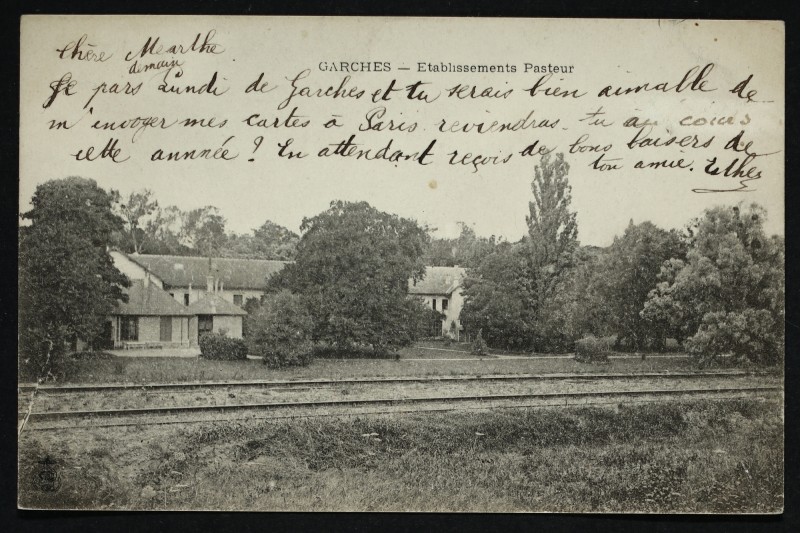 Chère Mearthe
GARCHES — Etablissements Pasteur
demain
Je pars Lundi de Garches et tu serais bien aimable de
m'envoyer mes cartes à Paris. reviendras-tu au cours
cette année? En attendant reçois de bons baisers de
ton amie.